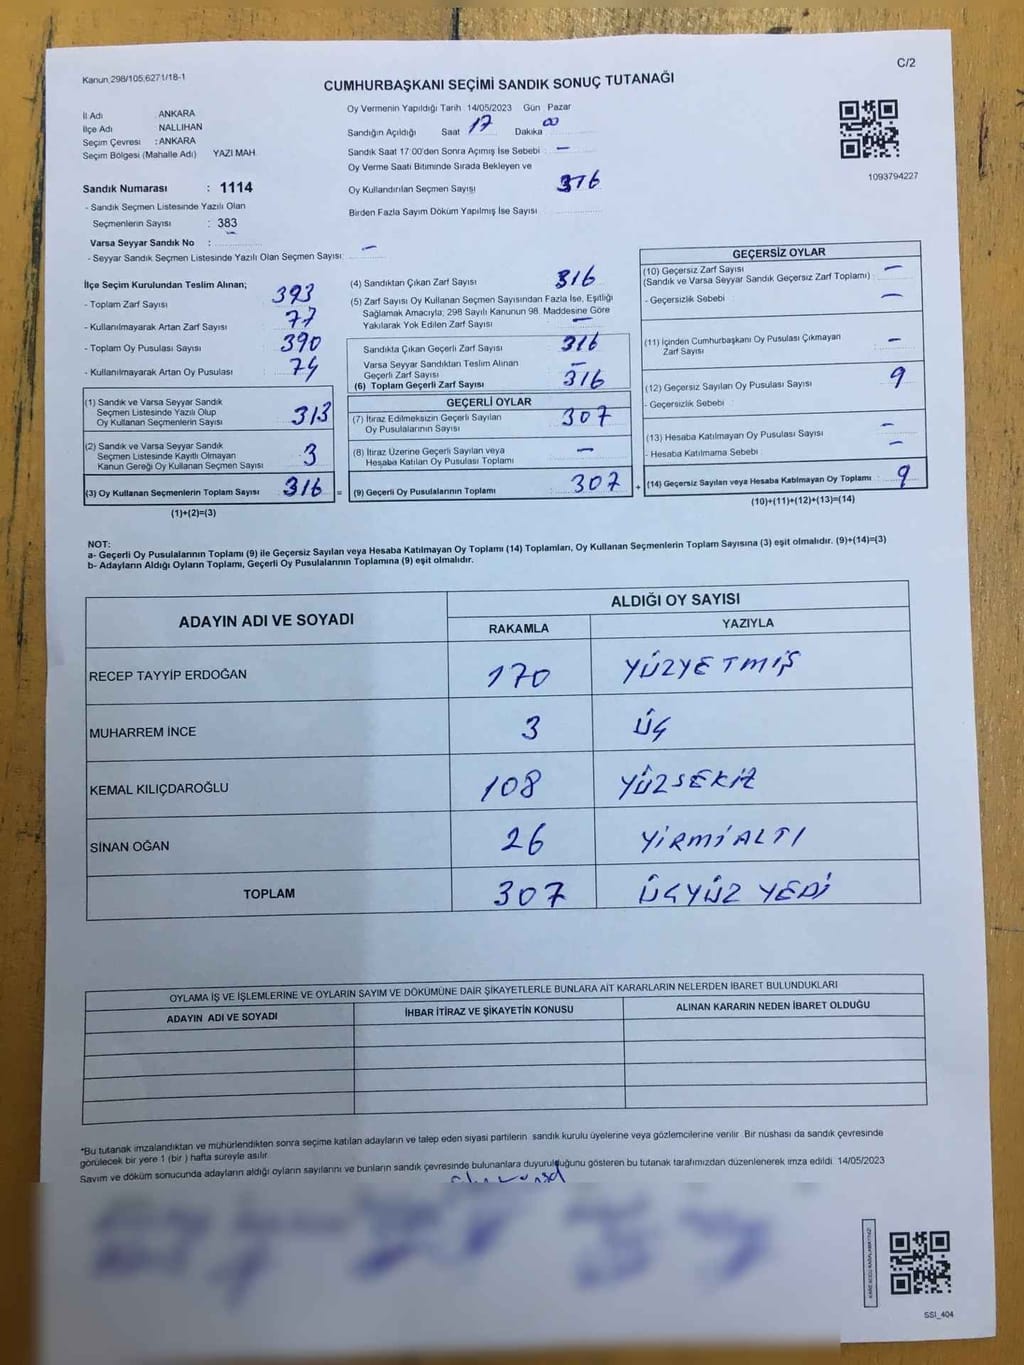 Kanun 298/105,6271/18-1
C/2
CUMHURBAŞKANI SEÇİMİ SANDIK SONUÇ TUTANAĞI
İl Adı ANKARA
İlçe Adı NALLIHAN
Seçim Çevresi : ANKARA
Seçim Bölgesi (Mahalle Adı) YAZI MAH.
Sandık Numarası : 1114
- Sandık Seçmen Listesinde Yazılı Olan
Seçmenlerin Sayısı : 383
Varsa Seyyar Sandık No :
- Seyyar Sandık Seçmen Listesinde Yazılı Olan Seçmen Sayısı: –
Oy Vermenin Yapıldığı Tarih 14/05/2023 Gün Pazar
Sandığın Açıldığı Saat 17 Dakika 00
Sandık Saat 17:00'den Sonra Açımış İse Sebebi : –
Oy Verme Saati Bitiminde Sırada Bekleyen ve
Oy Kullandırılan Seçmen Sayısı : 316
Birden Fazla Sayım Döküm Yapılmış İse Sayısı
1093794227
İlçe Seçim Kurulundan Teslim Alınan;
- Toplam Zarf Sayısı : 393
- Kullanılmayarak Artan Zarf Sayısı : 77
- Toplam Oy Pusulası Sayısı : 390
- Kullanılmayarak Artan Oy Pusulası : 74
(1) Sandık ve Varsa Seyyar Sandık
Seçmen Listesinde Yazılı Olup
Oy Kullanan Seçmenlerin Sayısı : 313
(2) Sandık ve Varsa Seyyar Sandık
Seçmen Listesinde Kayıtlı Olmayan
Kanun Gereği Oy Kullanan Seçmen Sayısı : 3
(3) Oy Kullanan Seçmenlerin Toplam Sayısı : 316 =
(1)+(2)=(3)
(4) Sandıktan Çıkan Zarf Sayısı : 316
(5) Zarf Sayısı Oy Kullanan Seçmen Sayısından Fazla İse, Eşitliği
Sağlamak Amacıyla; 298 Sayılı Kanunun 98. Maddesine Göre
Yakılarak Yok Edilen Zarf Sayısı : –
Sandıkta Çıkan Geçerli Zarf Sayısı : 316
Varsa Seyyar Sandıktan Teslim Alınan
Geçerli Zarf Sayısı : –
(6) Toplam Geçerli Zarf Sayısı : 316
GEÇERLİ OYLAR
(7) İtiraz Edilmeksizin Geçerli Sayılan
Oy Pusulalarının Sayısı : 307
(8) İtiraz Üzerine Geçerli Sayılan veya
Hesaba Katılan Oy Pusulası Toplamı : –
(9) Geçerli Oy Pusulalarının Toplamı : 307 +
GEÇERSİZ OYLAR
(10) Geçersiz Zarf Sayısı
(Sandık ve Varsa Seyyar Sandık Geçersiz Zarf Toplamı) : –
- Geçersizlik Sebebi : –
(11) İçinden Cumhurbaşkanı Oy Pusulası Çıkmayan
Zarf Sayısı : –
(12) Geçersiz Sayılan Oy Pusulası Sayısı : 9
- Geçersizlik Sebebi :
(13) Hesaba Katılmayan Oy Pusulası Sayısı : –
- Hesaba Katılmama Sebebi : –
(14) Geçersiz Sayılan veya Hesaba Katılmayan Oy Toplamı : 9
(10)+(11)+(12)+(13)=(14)
NOT:
a- Geçerli Oy Pusulalarının Toplamı (9) ile Geçersiz Sayılan veya Hesaba Katılmayan Oy Toplamı (14) Toplamları, Oy Kullanan Seçmenlerin Toplam Sayısına (3) eşit olmalıdır. (9)+(14)=(3)
b- Adayların Aldığı Oyların Toplamı, Geçerli Oy Pusulalarının Toplamına (9) eşit olmalıdır.
ADAYIN ADI VE SOYADI ALDIĞI OY SAYISI
RAKAMLA YAZIYLA
RECEP TAYYİP ERDOĞAN 170 YÜZYETMİŞ
MUHARREM İNCE 3 ÜÇ
KEMAL KILIÇDAROĞLU 108 YÜZSEKİZ
SİNAN OĞAN 26 YİRMİALTI
TOPLAM 307 ÜÇYÜZ YEDİ
OYLAMA İŞ VE İŞLEMLERİNE VE OYLARIN SAYIM VE DÖKÜMÜNE DAİR ŞİKAYETLERLE BUNLARA AİT KARARLARIN NELERDEN İBARET BULUNDUKLARI
ADAYIN ADI VE SOYADI İHBAR İTİRAZ VE ŞİKAYETİN KONUSU ALINAN KARARIN NEDEN İBARET OLDUĞU
*Bu tutanak imzalandıktan ve mühürlendikten sonra seçime katılan adayların ve talep eden siyasi partilerin sandık kurulu üyelerine veya gözlemcilerine verilir. Bir nüshası da sandık çevresinde
görülecek bir yere 1 (bir ) hafta süreyle asılır.
Sayım ve döküm sonucunda adayların aldığı oyların sayılarını ve bunların sandık çevresinde bulunanlara duyurulduğunu gösteren bu tutanak tarafımızdan düzenlenerek imza edildi. 14/05/2023
SSI_404